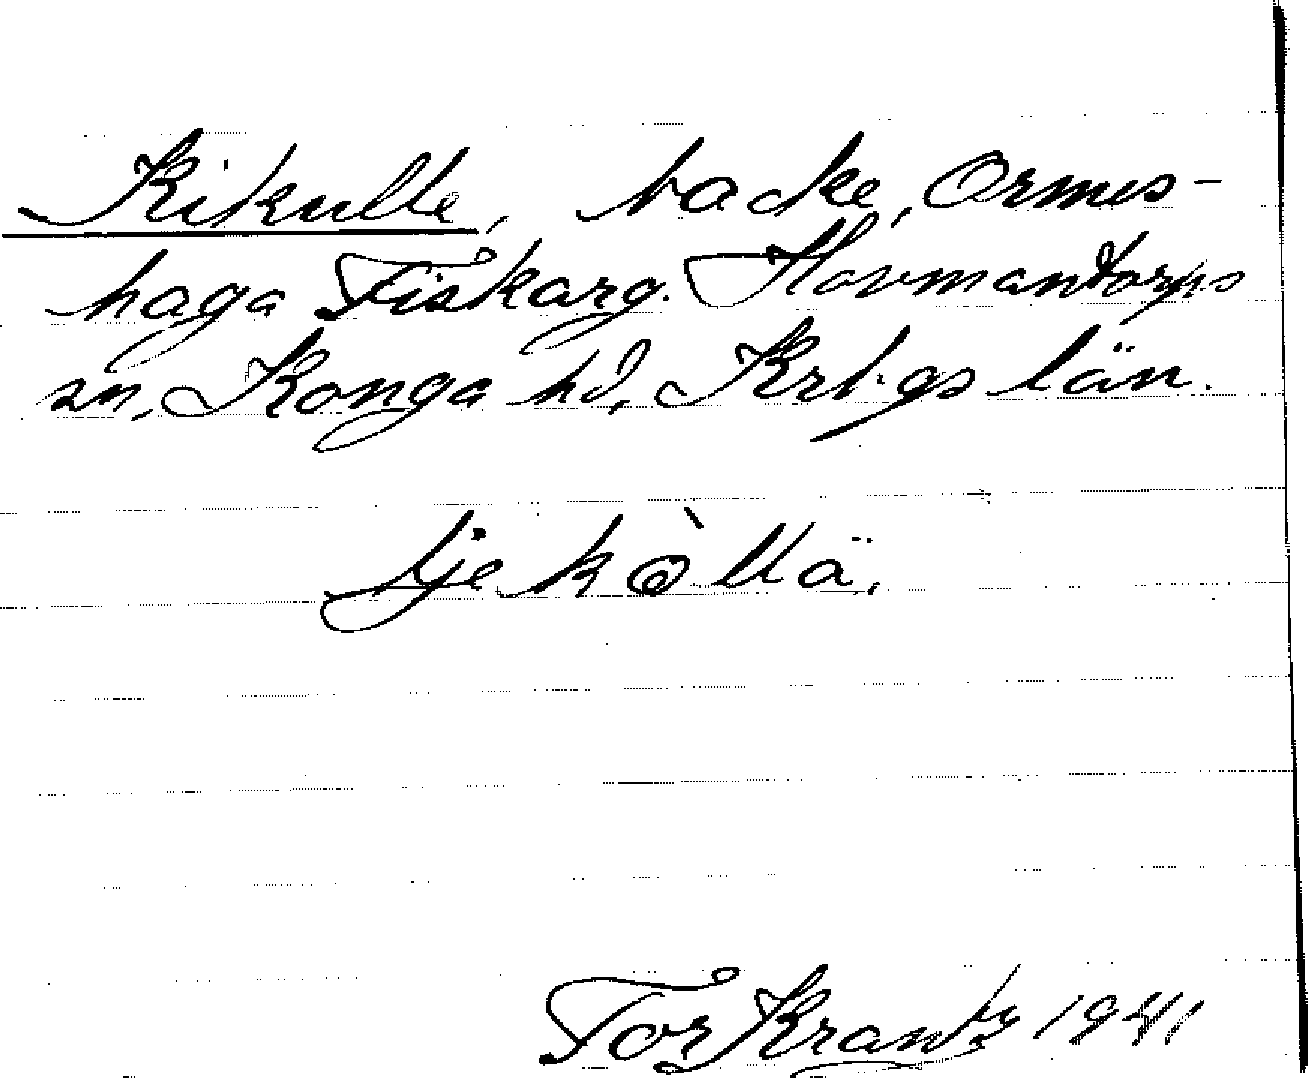 Kikulle, backe, Ormes-
haga Fiskarg. Hovmantorps
sn, Konga hd, Krb.gs län.
tjekòllä.
Tor Krantz 1941